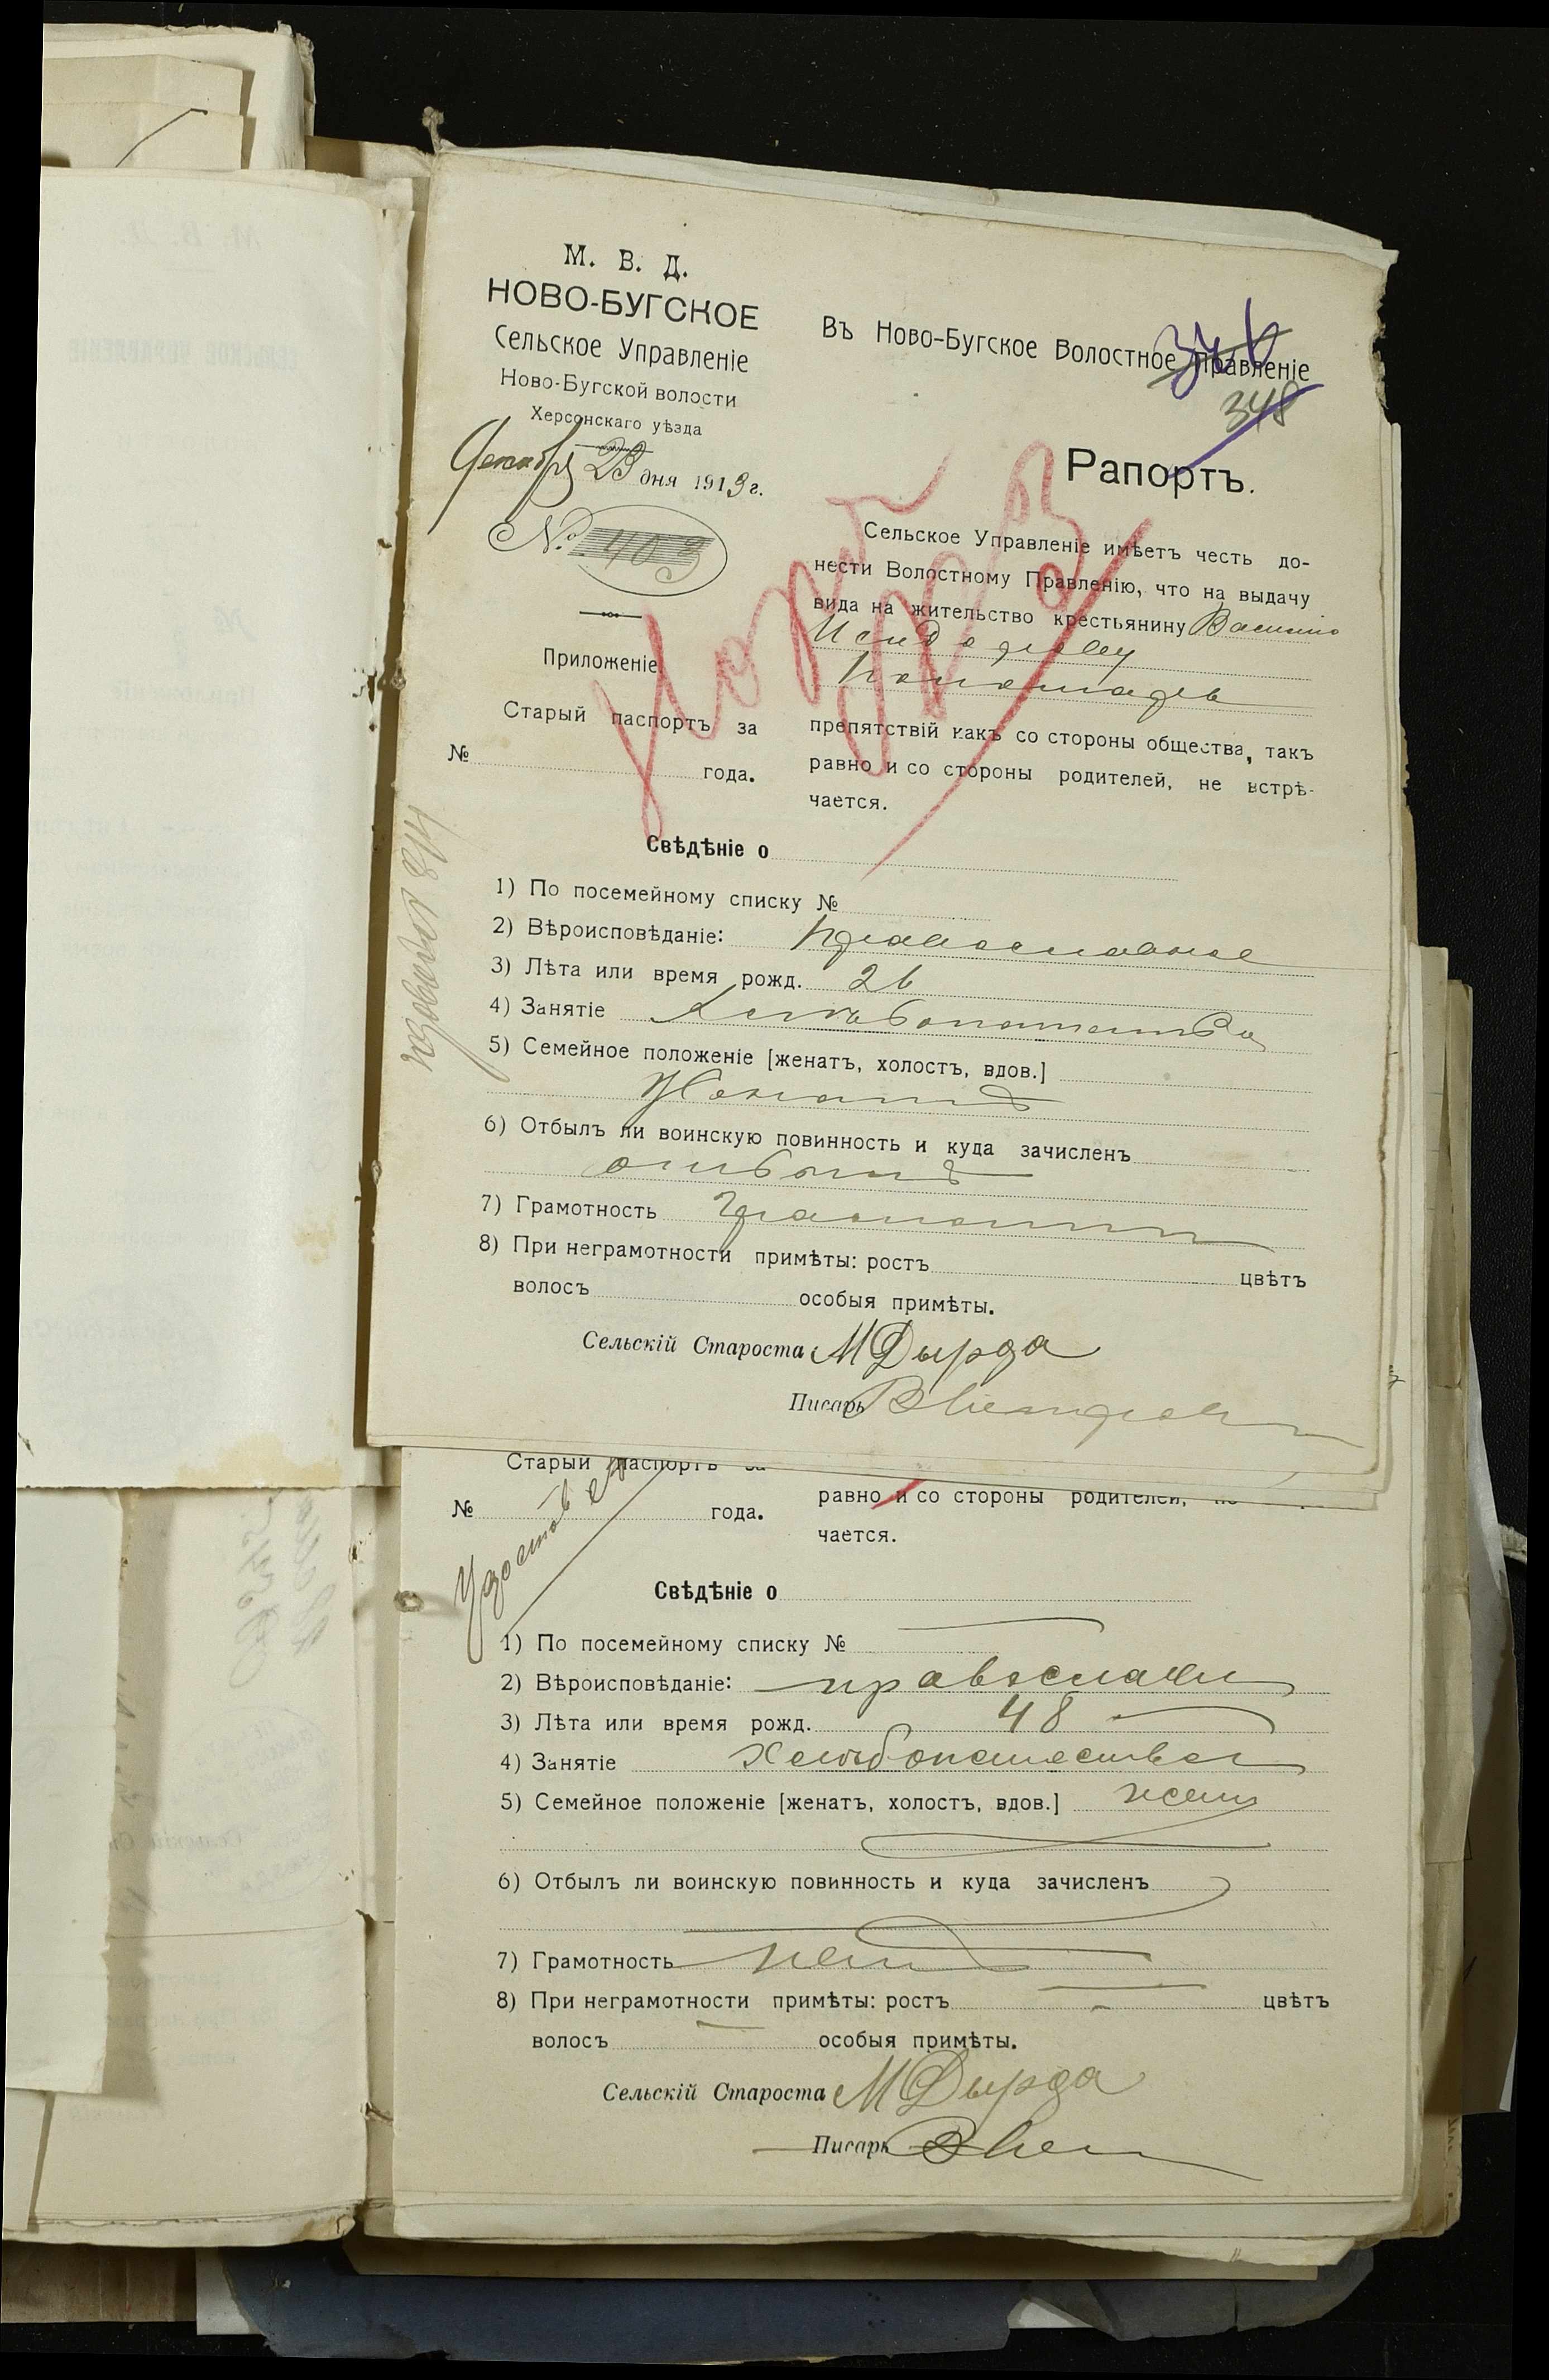 М. В. Д.
НОВО-БУГСКОЕ
Сельское Управленіе
Ново-Бугской волости
Херсонскаго уѣзда
Декабря 23 дня 1913 г.
№ 403
Приложеніе
Старый паспортъ за
№ года.
Въ Ново-Бугское Волостное Правленіе
346
348
Рапортъ.
Сельское Управленіе имѣетъ честь до-
нести Волостному Правленію, что на выдачу
вида на жительство крестьянину Василію
Исидорову
препятствій какъ со стороны общества, такъ
равно и со стороны родителей, не встрѣ-
чается.
Свѣдѣніе о
1) По посемейному списку №
2) Вѣроисповѣданіе: Православное
3) Лѣта или время рожд. 26
4) Занятіе Хлѣбопашество
5) Семейное положеніе [женатъ, холостъ, вдов.]
Женатъ
6) Отбылъ ли воинскую повинность и куда зачисленъ
отбылъ
7) Грамотность Грамотн
8) При неграмотности примѣты: ростъ цвѣтъ
волосъ особыя примѣты.
Сельскій Староста МДырда
Писарь
Старый паспортъ за
№ года.
равно и со стороны родителей,
чается.
Свѣдѣніе о
1) По посемейному списку №
2) Вѣроисповѣданіе: православн
3) Лѣта или время рожд. 48
4) Занятіе Хлѣбопашество
5) Семейное положеніе [женатъ, холостъ, вдов.] жен
6) Отбылъ ли воинскую повинность и куда зачисленъ
7) Грамотность нетъ
8) При неграмотности примѣты: ростъ цвѣтъ
волосъ особыя примѣты.
Сельскій Староста МДырда
Писарь